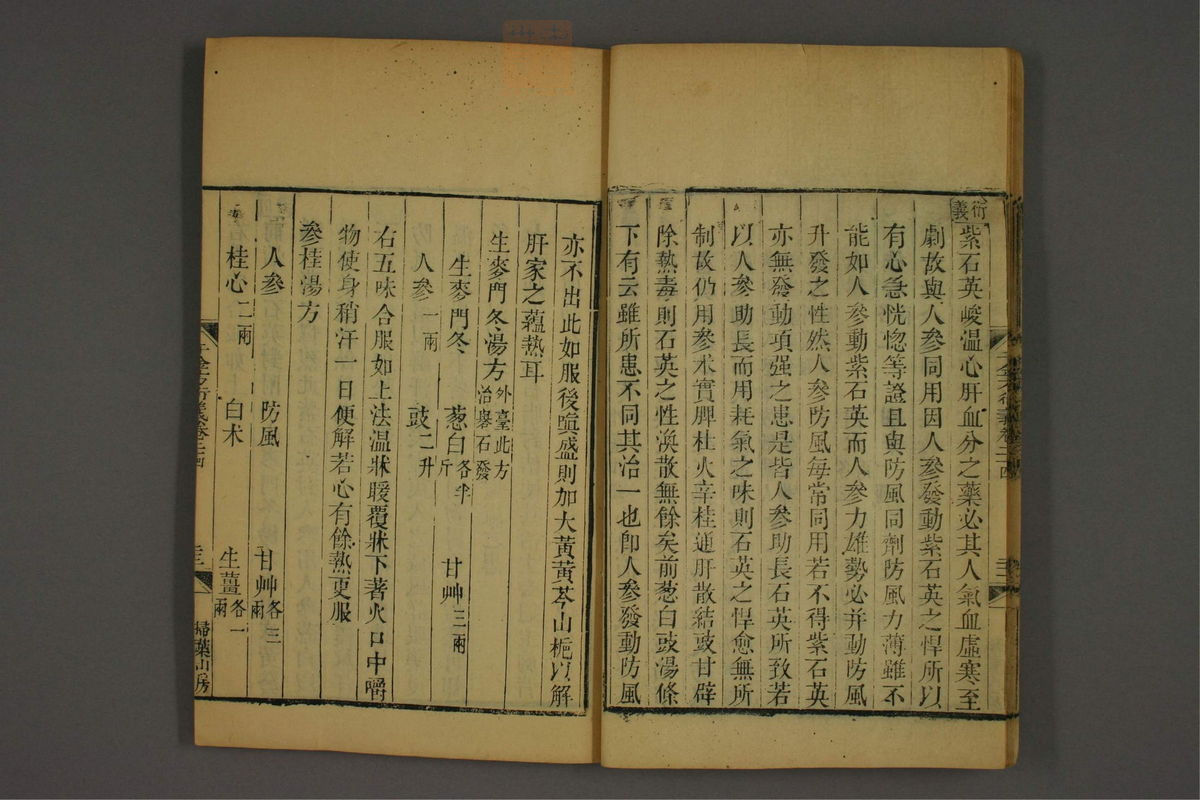 衍義
紫石英峻溫心肝血分之藥必其人氣血虛寒至
劇故與人參同用因人參發動紫石英之悍所以
有心急恍惚等證且與防風同劑防風力薄雖不
能如人參動紫石英而人參力雄勢必并動防風
升發之性然人參防風每常同用若不得紫石英
亦無發動項强之患是皆人參助長石英所致若
以人參助長而用耗氣之味則石英之悍愈無所
制故仍用參术實脾桂火辛桂通肝散結豉甘辟
除熱毒則石英之性渙散無餘矣前葱白豉湯條
下有云雖所患不同其治一也卽人參發動防風
亦不出此如服後嗔盛則加大黃黃芩山梔以解
肝家之蘊熱耳
生麥門冬湯方外臺此方治礜石發
生麥門冬 葱白各半斤 甘艸三兩
人參一兩 豉二升
右五味合服如上法溫牀暖覆牀下著火口中嚼
物使身稍汗一日便解若心有餘熱更服
參桂湯方
人參 防風 甘艸各三兩
桂心二兩 白术 生薑各一兩
掃葉山房